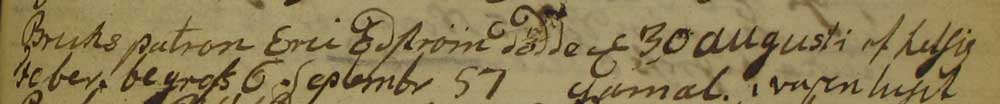 Bruks patron Eric Edström dödde d 30 augusti af hesig
feber. begrofs 6 September 57 gamal.